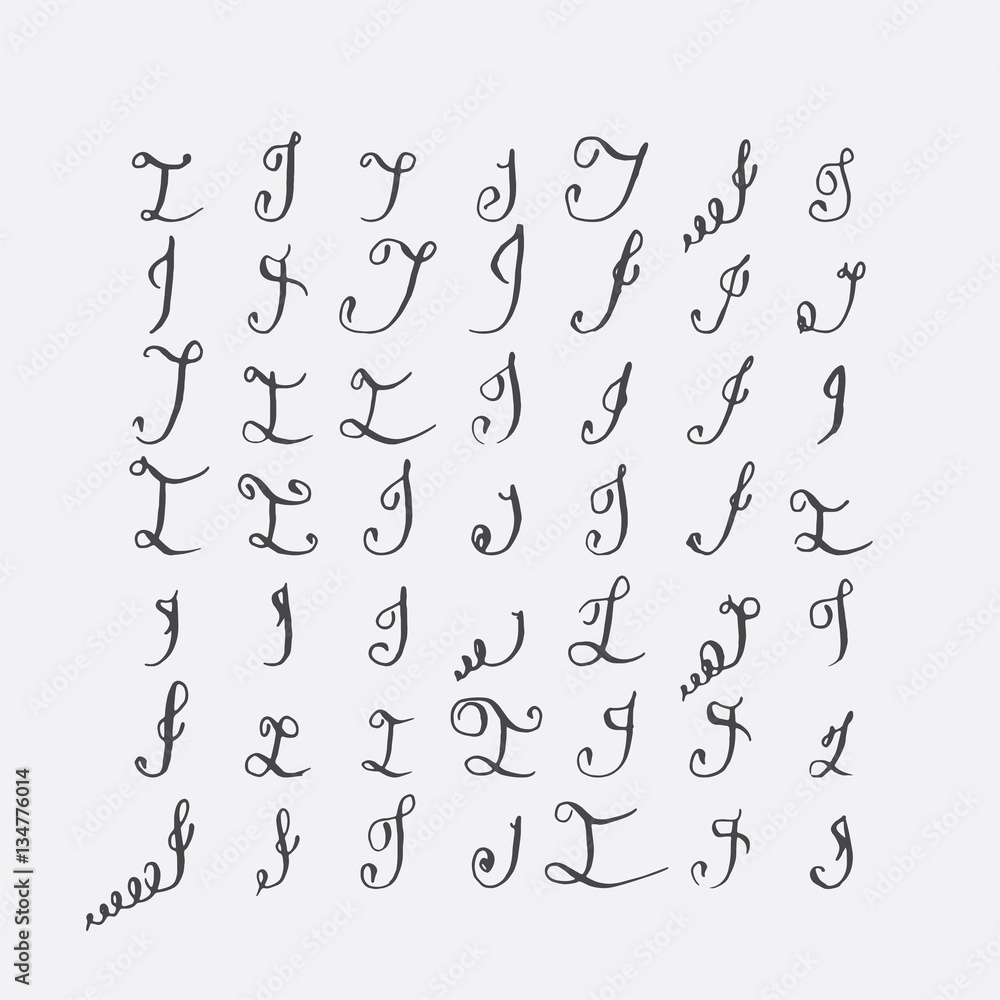 I I I I I I I
I I I I I I I
I I I I I I I
I I I I I I I
I I I I I I I
I I I I I I I
I I I I I I I
Adobe Stock | #134776014